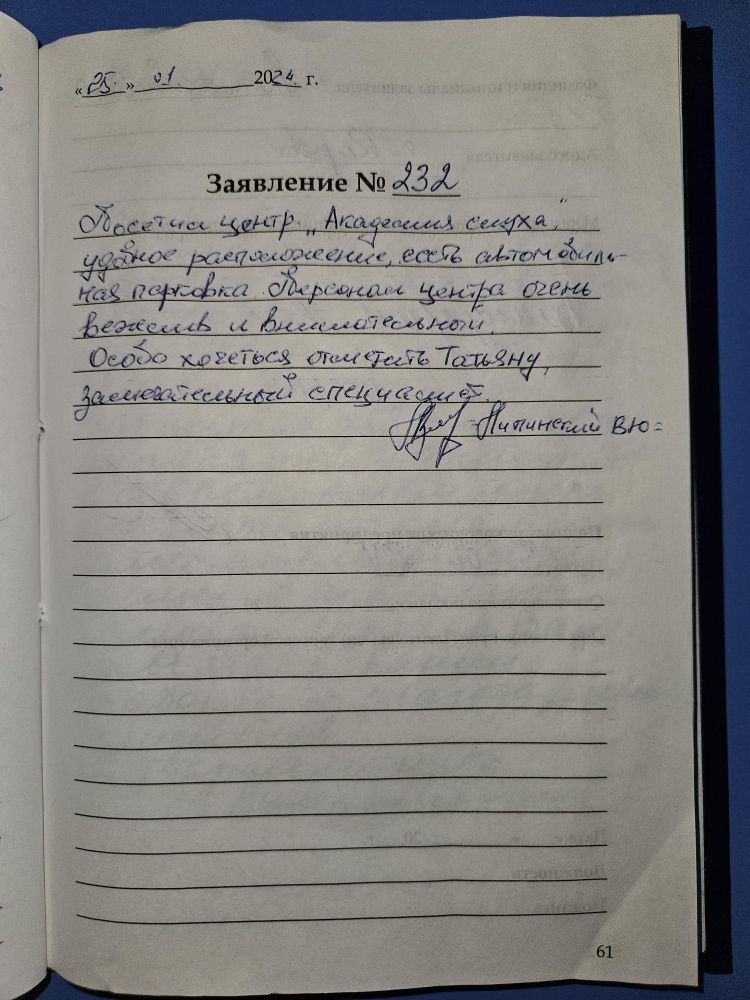 «25» 01. 2024 г.
Заявление № 232
Посетил центр „Академия слуха",
удобное расположение, есть автомобиль-
ная парковка. Персонал центра очень
вежлив и внимательный.
Особо хочеться отметить Татьяну,
замечательный специалист.
=Липинский В Ю=
61